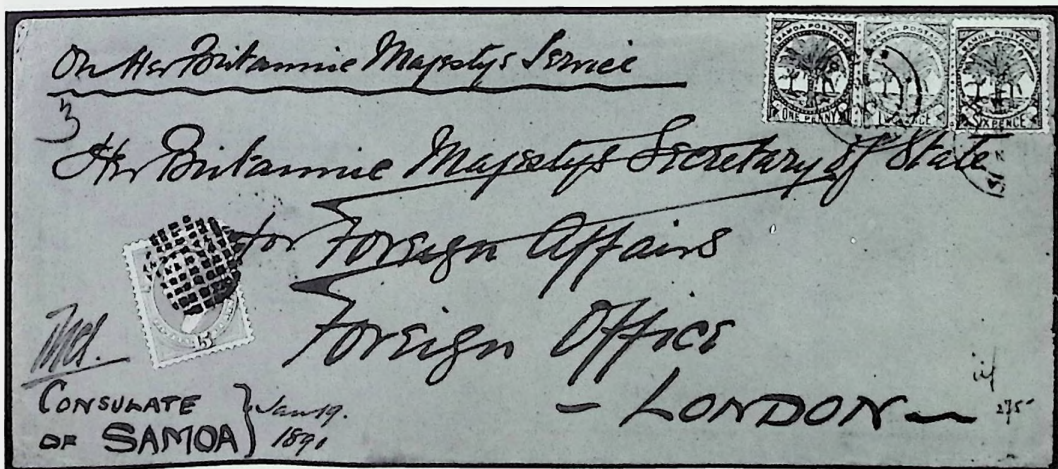 On Her Britannic Majestys Service
SAMOA POSTAGE
ONE PENNY
SAMOA POSTAGE
SAMOA POSTAGE
SIX PENCE
3
Her Britannic Majestys Secretary of State
for Foreign Affairs
Foreign Office
- LONDON -
5
CONSULATE
OF SAMOA } Jan 19.
1891
275